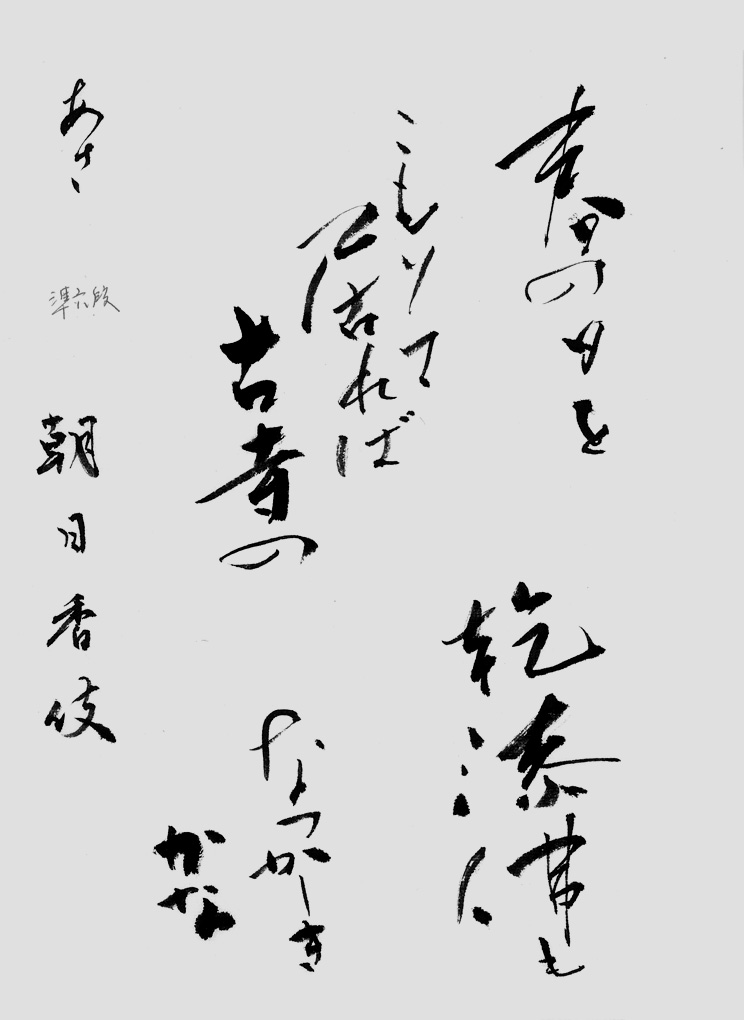 春の夕を
乾漆佛と
こもりて
居れば
古寺の
なつかしき
かな
あさ 準六段 朝日香伎